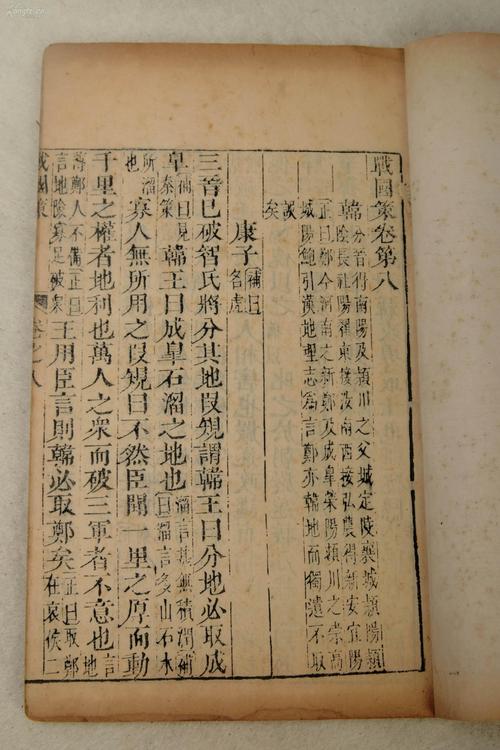 戰國策卷第八
韓分晉得南陽及潁川之父城定陵襄城潁陽潁
陰長社陽翟東接汝南西接弘農得新安宜陽
正曰鄭今河南之新鄭及成臯滎陽潁川之崇高
城陽鮑引漢地理志爲言鄭亦韓地而獨遺不取
誤
矣
康子補曰名虎
三晉已破智氏將分其地叚規謂韓王曰分地必取成
臯補曰見秦策韓王曰成臯石溜之地也溜言其無積潤補曰溜言多山石水
所溜也寡人無所用之叚規曰不然臣聞一里之厚而動
千里之權者地利也萬人之衆而破三軍者不意也言地
鄭人不備正曰言地險寡足破衆王用臣言則韓必取鄭矣正曰取鄭在哀侯二
戰國策 卷之八